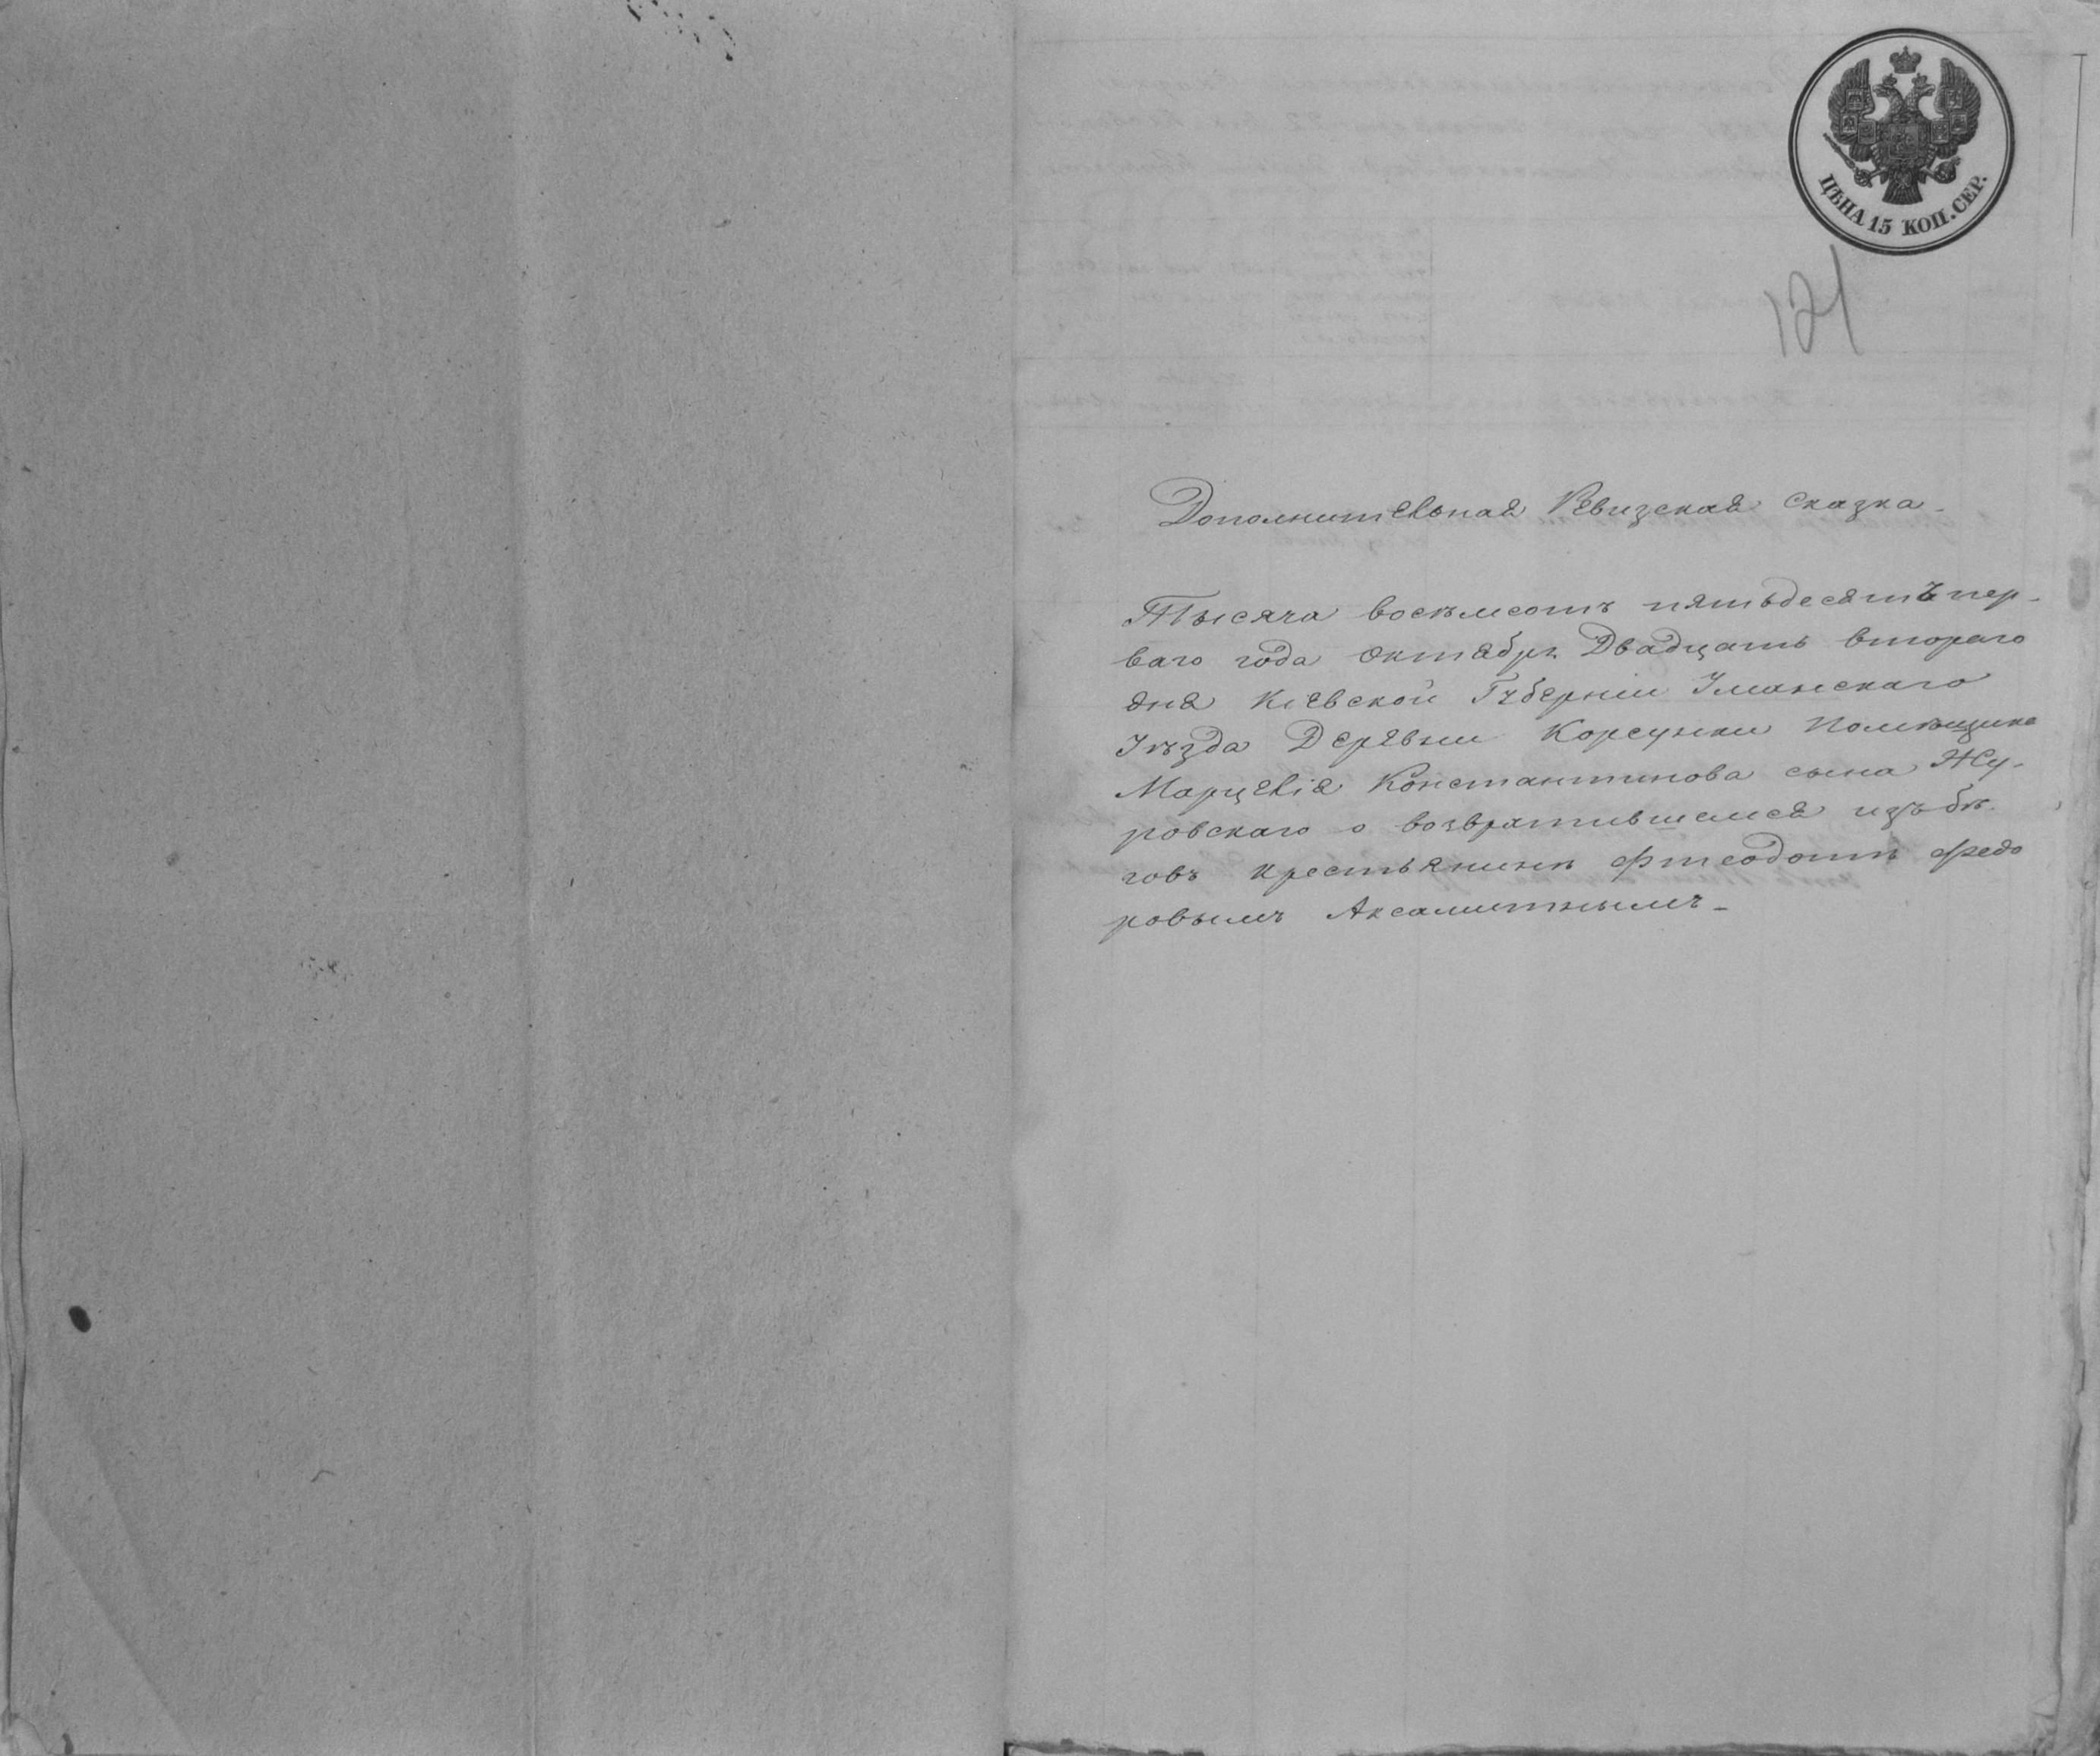 ЦѢНА 15 КОП. СЕР.
121
Дополнительная Ревизская Сказка.
Тысяча восемсотъ пятьдесятъ пер-
ваго года Октября Двадцать втораго
дня Кіевской Губерніи Уманскаго
Уѣзда Деревни Корсунки Помѣщика
Марцелія Константинова сына Жу-
ровскаго о возвратившемся изъ бѣ
говъ крестьянинѣ Фтеодотѣ Федо
ровымъ Аксамитнымъ